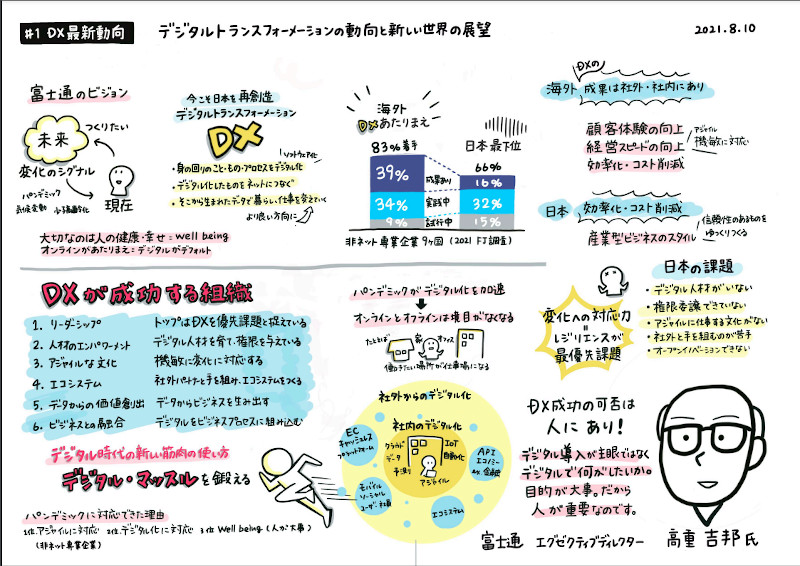 #1 DX最新動向
デジタルトランスフォーメーションの動向と新しい世界の展望
2021.8.10
富士通のビジョン
未来
つくりたい
変化のシグナル
パンデミック
気候変動
少子高齢化
現在
大切なのは人の健康・幸せ = well being
オンラインがあたりまえ = デジタルがデフォルト
今こそ日本を再創造
デジタルトランスフォーメーション
DX
ソフトウェア化
・身の回りのこと・もの・プロセスをデジタル化
・デジタル化したものをネットにつなぐ
・そこから生まれたデータで暮らし、仕事を変えていく
より良い方向に
海外
DXあたりまえ
83%着手
日本最下位
66%
39%
成果あり
16%
34%
実践中
32%
9%
試行中
15%
非ネット専業企業9ヶ国 (2021 FJ調査)
DXの
海外 成果は社外・社内にあり
顧客体験の向上
経営スピードの向上
効率化・コスト削減
アジャイル
機敏に対応
日本 効率化・コスト削減
産業型ビジネスのスタイル
信頼性のあるものを
ゆっくりつくる
DXが成功する組織
1. リーダーシップ トップはDXを優先課題と捉えている
2. 人材のエンパワーメント デジタル人材を育て、権限を与えている
3. アジャイルな文化 機敏に変化に対応する
4. エコシステム 社外パートナーと手を組み、エコシステムをつくる
5. データからの価値創出 データからビジネスを生み出す
6. ビジネスとの融合 デジタルをビジネスプロセスに組み込む
デジタル時代の新しい筋肉の使い方
デジタル・マッスルを鍛える
パンデミックに対応できた理由
1位.アジャイルに対応 2位.デジタル化に対応 3位 Well being (人が大事)
(非ネット専業企業)
パンデミックがデジタル化を加速
オンラインとオフラインは境目がなくなる
たとえば
家
オフィス
働きたい場所が仕事場になる
社外からのデジタル化
社内のデジタル化
EC
キャッシュレス
プラットフォーム
クラウド
データ
予測
IoT
自動化
アジャイル
API
エコノミー
ex. 金融
モバイル
ソーシャル
ユーザー・社員
エコシステム
変化への対応力
=
レジリエンスが
最優先課題
日本の課題
・デジタル人材がいない
・権限委譲できていない
・アジャイルに仕事する文化がない
・社外と手を組むのが苦手
・オープンイノベーションできない
DX成功の可否は
人にあり!
デジタル導入が主眼ではなく
デジタルで何がしたいか。
目的が大事。だから
人が重要なのです。
富士通 エグゼクティブディレクター 高重 吉邦氏